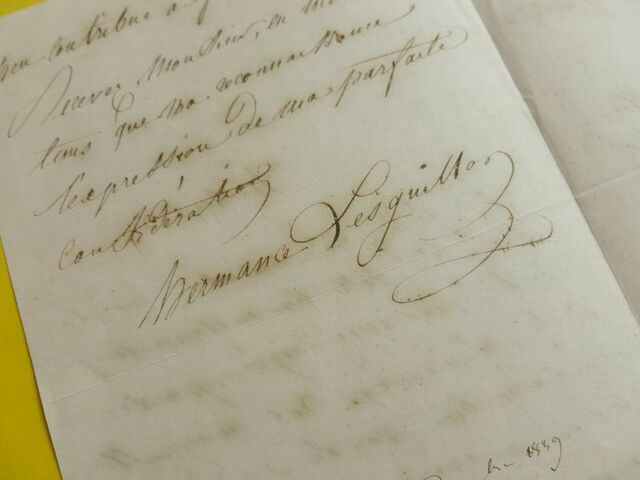 peu contribué à
Recevez Monsieur, en
tems que ma reconnaissance
l'expression de ma parfaite
considération
Hermance Lesguillon
1839